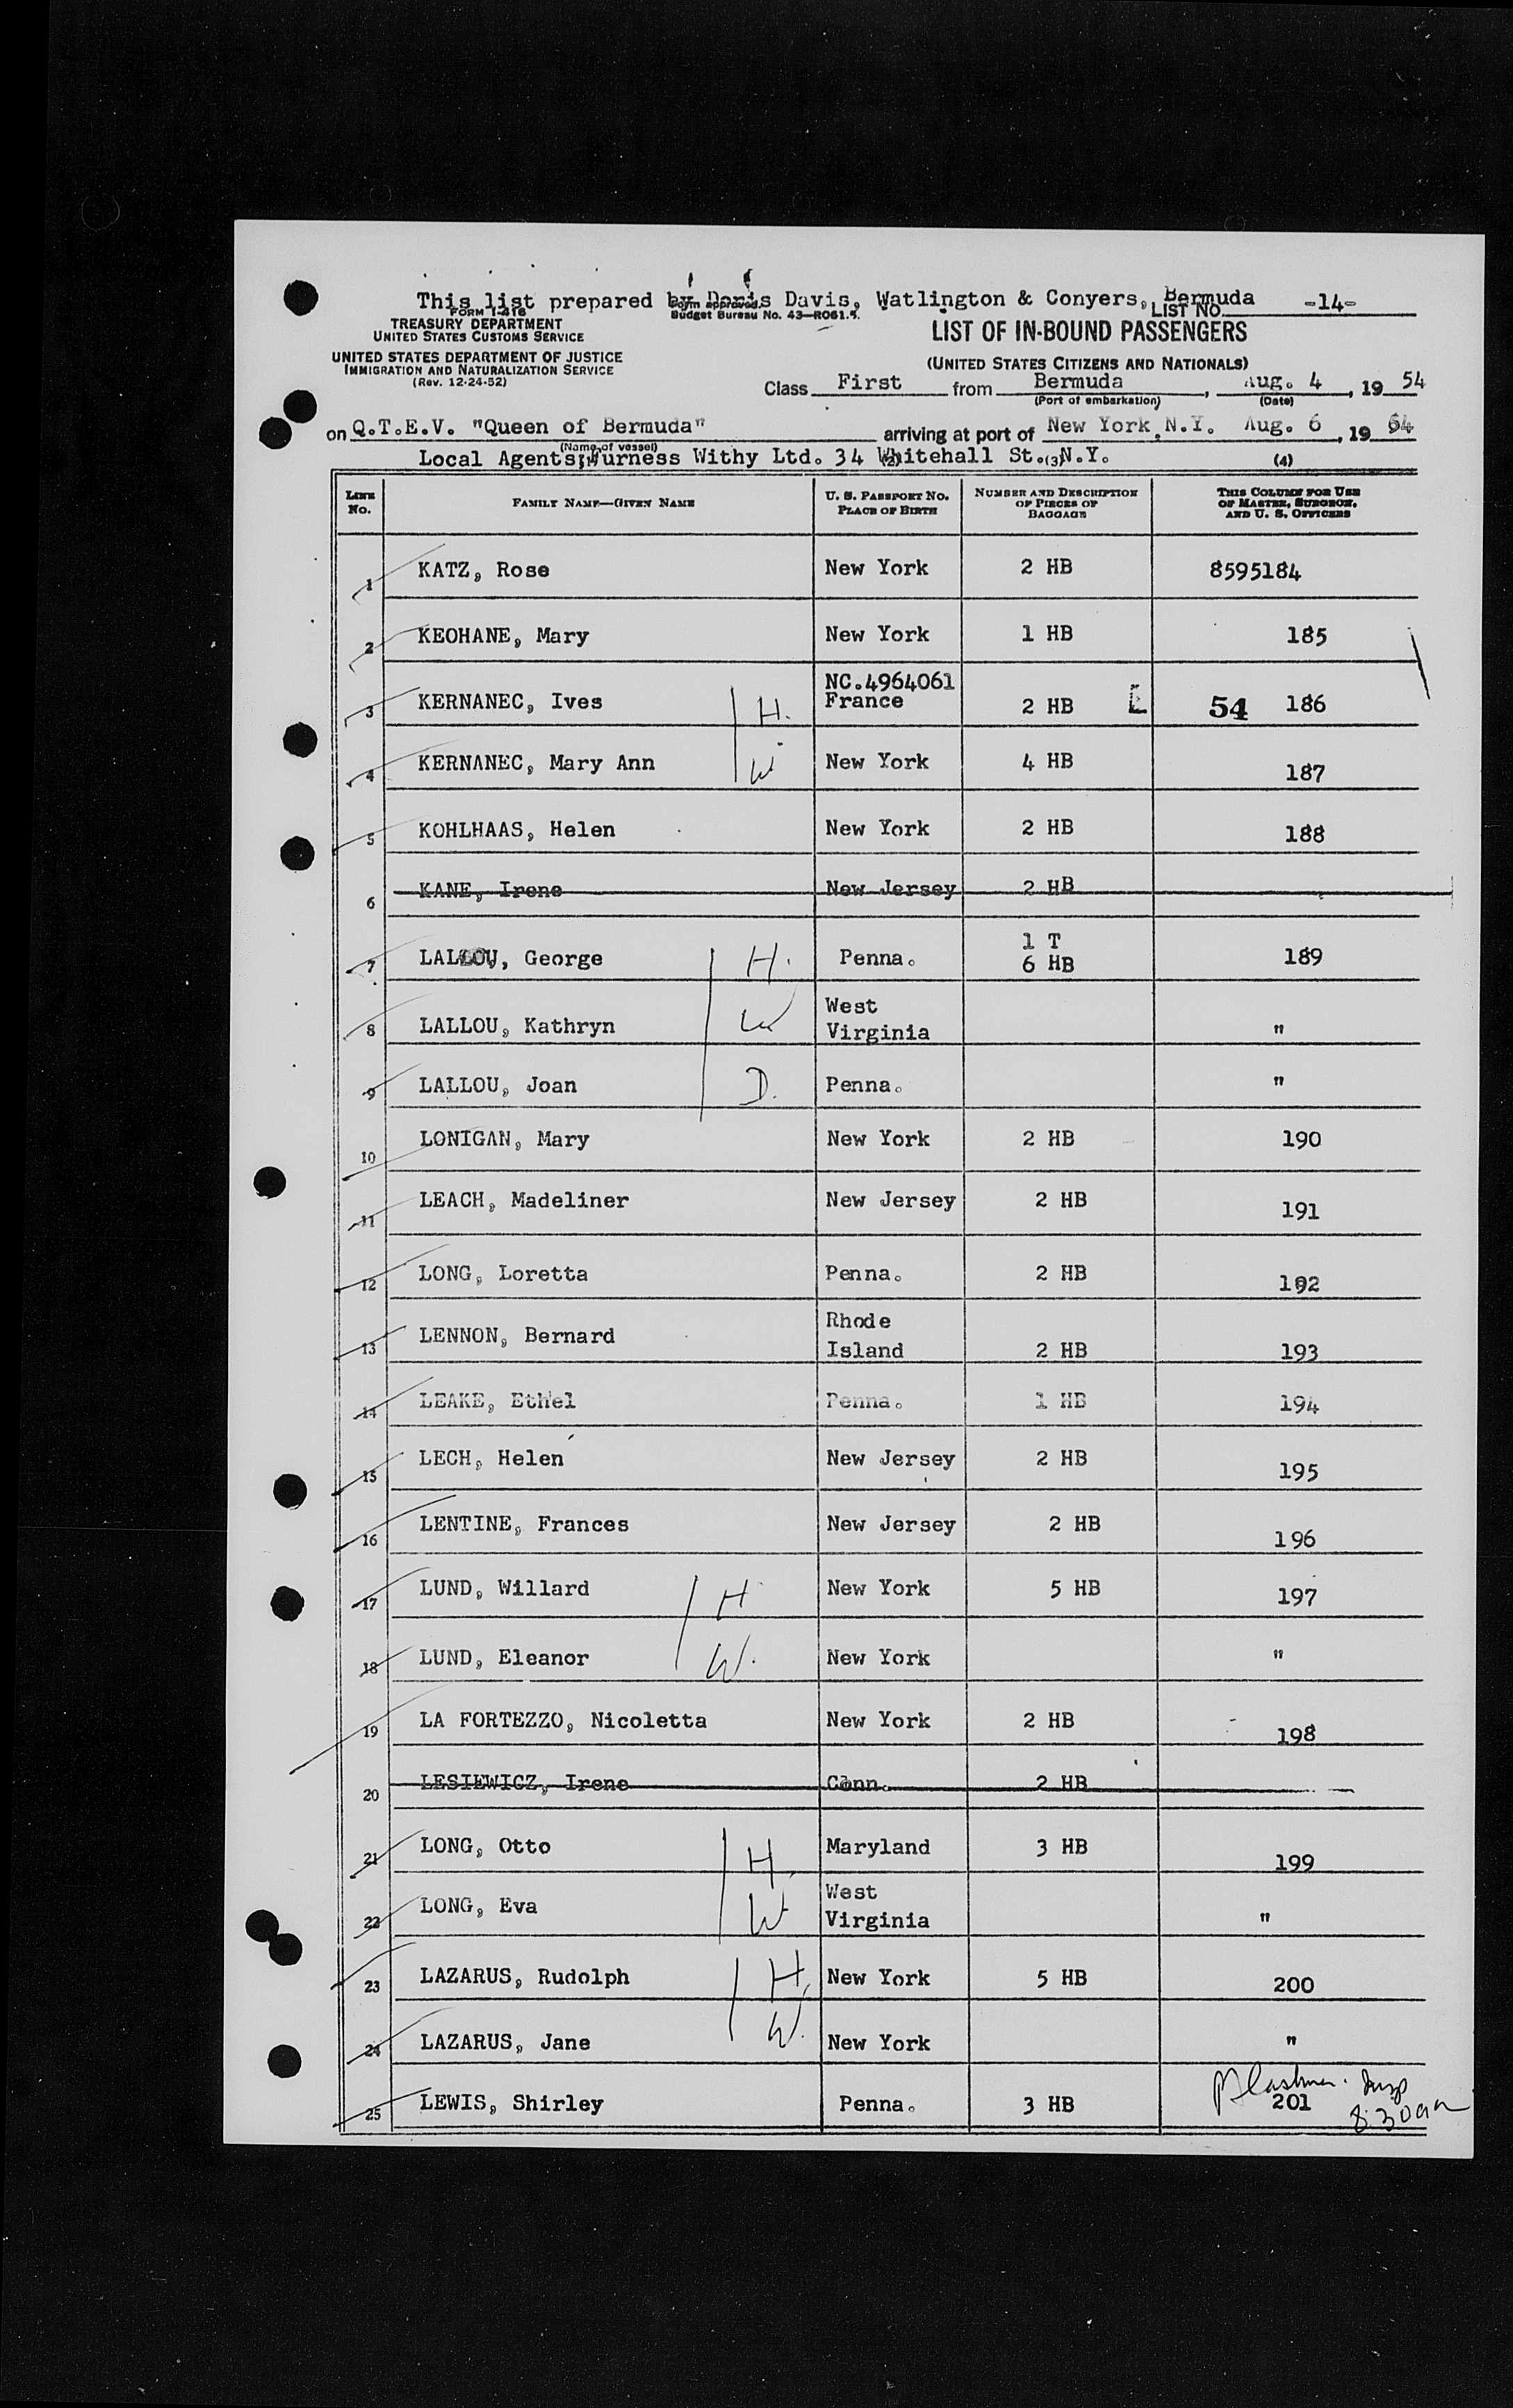 This list prepared by Doris Davis, Watlington & Conyers, Bermuda -14-
FORM I-416
Form approved.
Budget Bureau No. 43—R061.5.
LIST NO.
TREASURY DEPARTMENT
UNITED STATES CUSTOMS SERVICE
LIST OF IN-BOUND PASSENGERS
UNITED STATES DEPARTMENT OF JUSTICE
IMMIGRATION AND NATURALIZATION SERVICE
(Rev. 12-24-52)
(UNITED STATES CITIZENS AND NATIONALS)
Class First from Bermuda, Aug. 4, 19 54
(Port of embarkation) (Date)
on Q.T.E.V. "Queen of Bermuda" arriving at port of New York, N.Y. Aug. 6, 19 54
(Name of vessel)
Local Agents: Furness Withy Ltd. 34 Whitehall St. N.Y.
(1) (2) (3) (4)
LINE No. FAMILY NAME—GIVEN NAME U. S. PASSPORT NO. PLACE OF BIRTH NUMBER AND DESCRIPTION OF PIECES OF BAGGAGE THIS COLUMN FOR USE OF MASTER, SURGEON, AND U. S. OFFICERS
1 KATZ, Rose New York 2 HB 8595184
2 KEOHANE, Mary New York 1 HB 185
NC.4964061
3 KERNANEC, Ives H. France 2 HB L 54 186
4 KERNANEC, Mary Ann W New York 4 HB 187
5 KOHLHAAS, Helen New York 2 HB 188
6 KANE, Irene New Jersey 2 HB
1 T
7 LALLOU, George H. Penna. 6 HB 189
West
8 LALLOU, Kathryn W Virginia "
9 LALLOU, Joan D. Penna. "
10 LONIGAN, Mary New York 2 HB 190
11 LEACH, Madeliner New Jersey 2 HB 191
12 LONG, Loretta Penna. 2 HB 192
Rhode
13 LENNON, Bernard Island 2 HB 193
14 LEAKE, Ethel Penna. 1 HB 194
15 LECH, Helen New Jersey 2 HB 195
16 LENTINE, Frances New Jersey 2 HB 196
17 LUND, Willard H New York 5 HB 197
18 LUND, Eleanor W. New York "
19 LA FORTEZZO, Nicoletta New York 2 HB 198
20 LESIEWICZ, Irene Conn. 2 HB
21 LONG, Otto H. Maryland 3 HB 199
West
22 LONG, Eva W Virginia "
23 LAZARUS, Rudolph H. New York 5 HB 200
24 LAZARUS, Jane W. New York "
25 LEWIS, Shirley Penna. 3 HB 201
8:30am